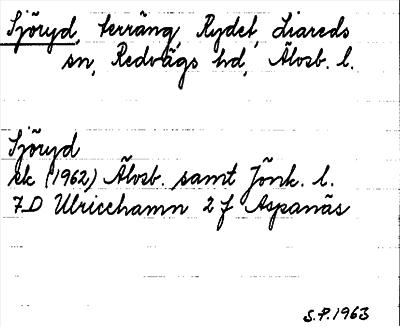 Sjöryd, terräng, Rydet, Liareds
sn, Redvägs hd, Älvsb. l.
Sjöryd
ek (1962) Älvsb. samt Jönk. l.
7D Ulricehamn 2 f Aspanäs
S.P. 1963